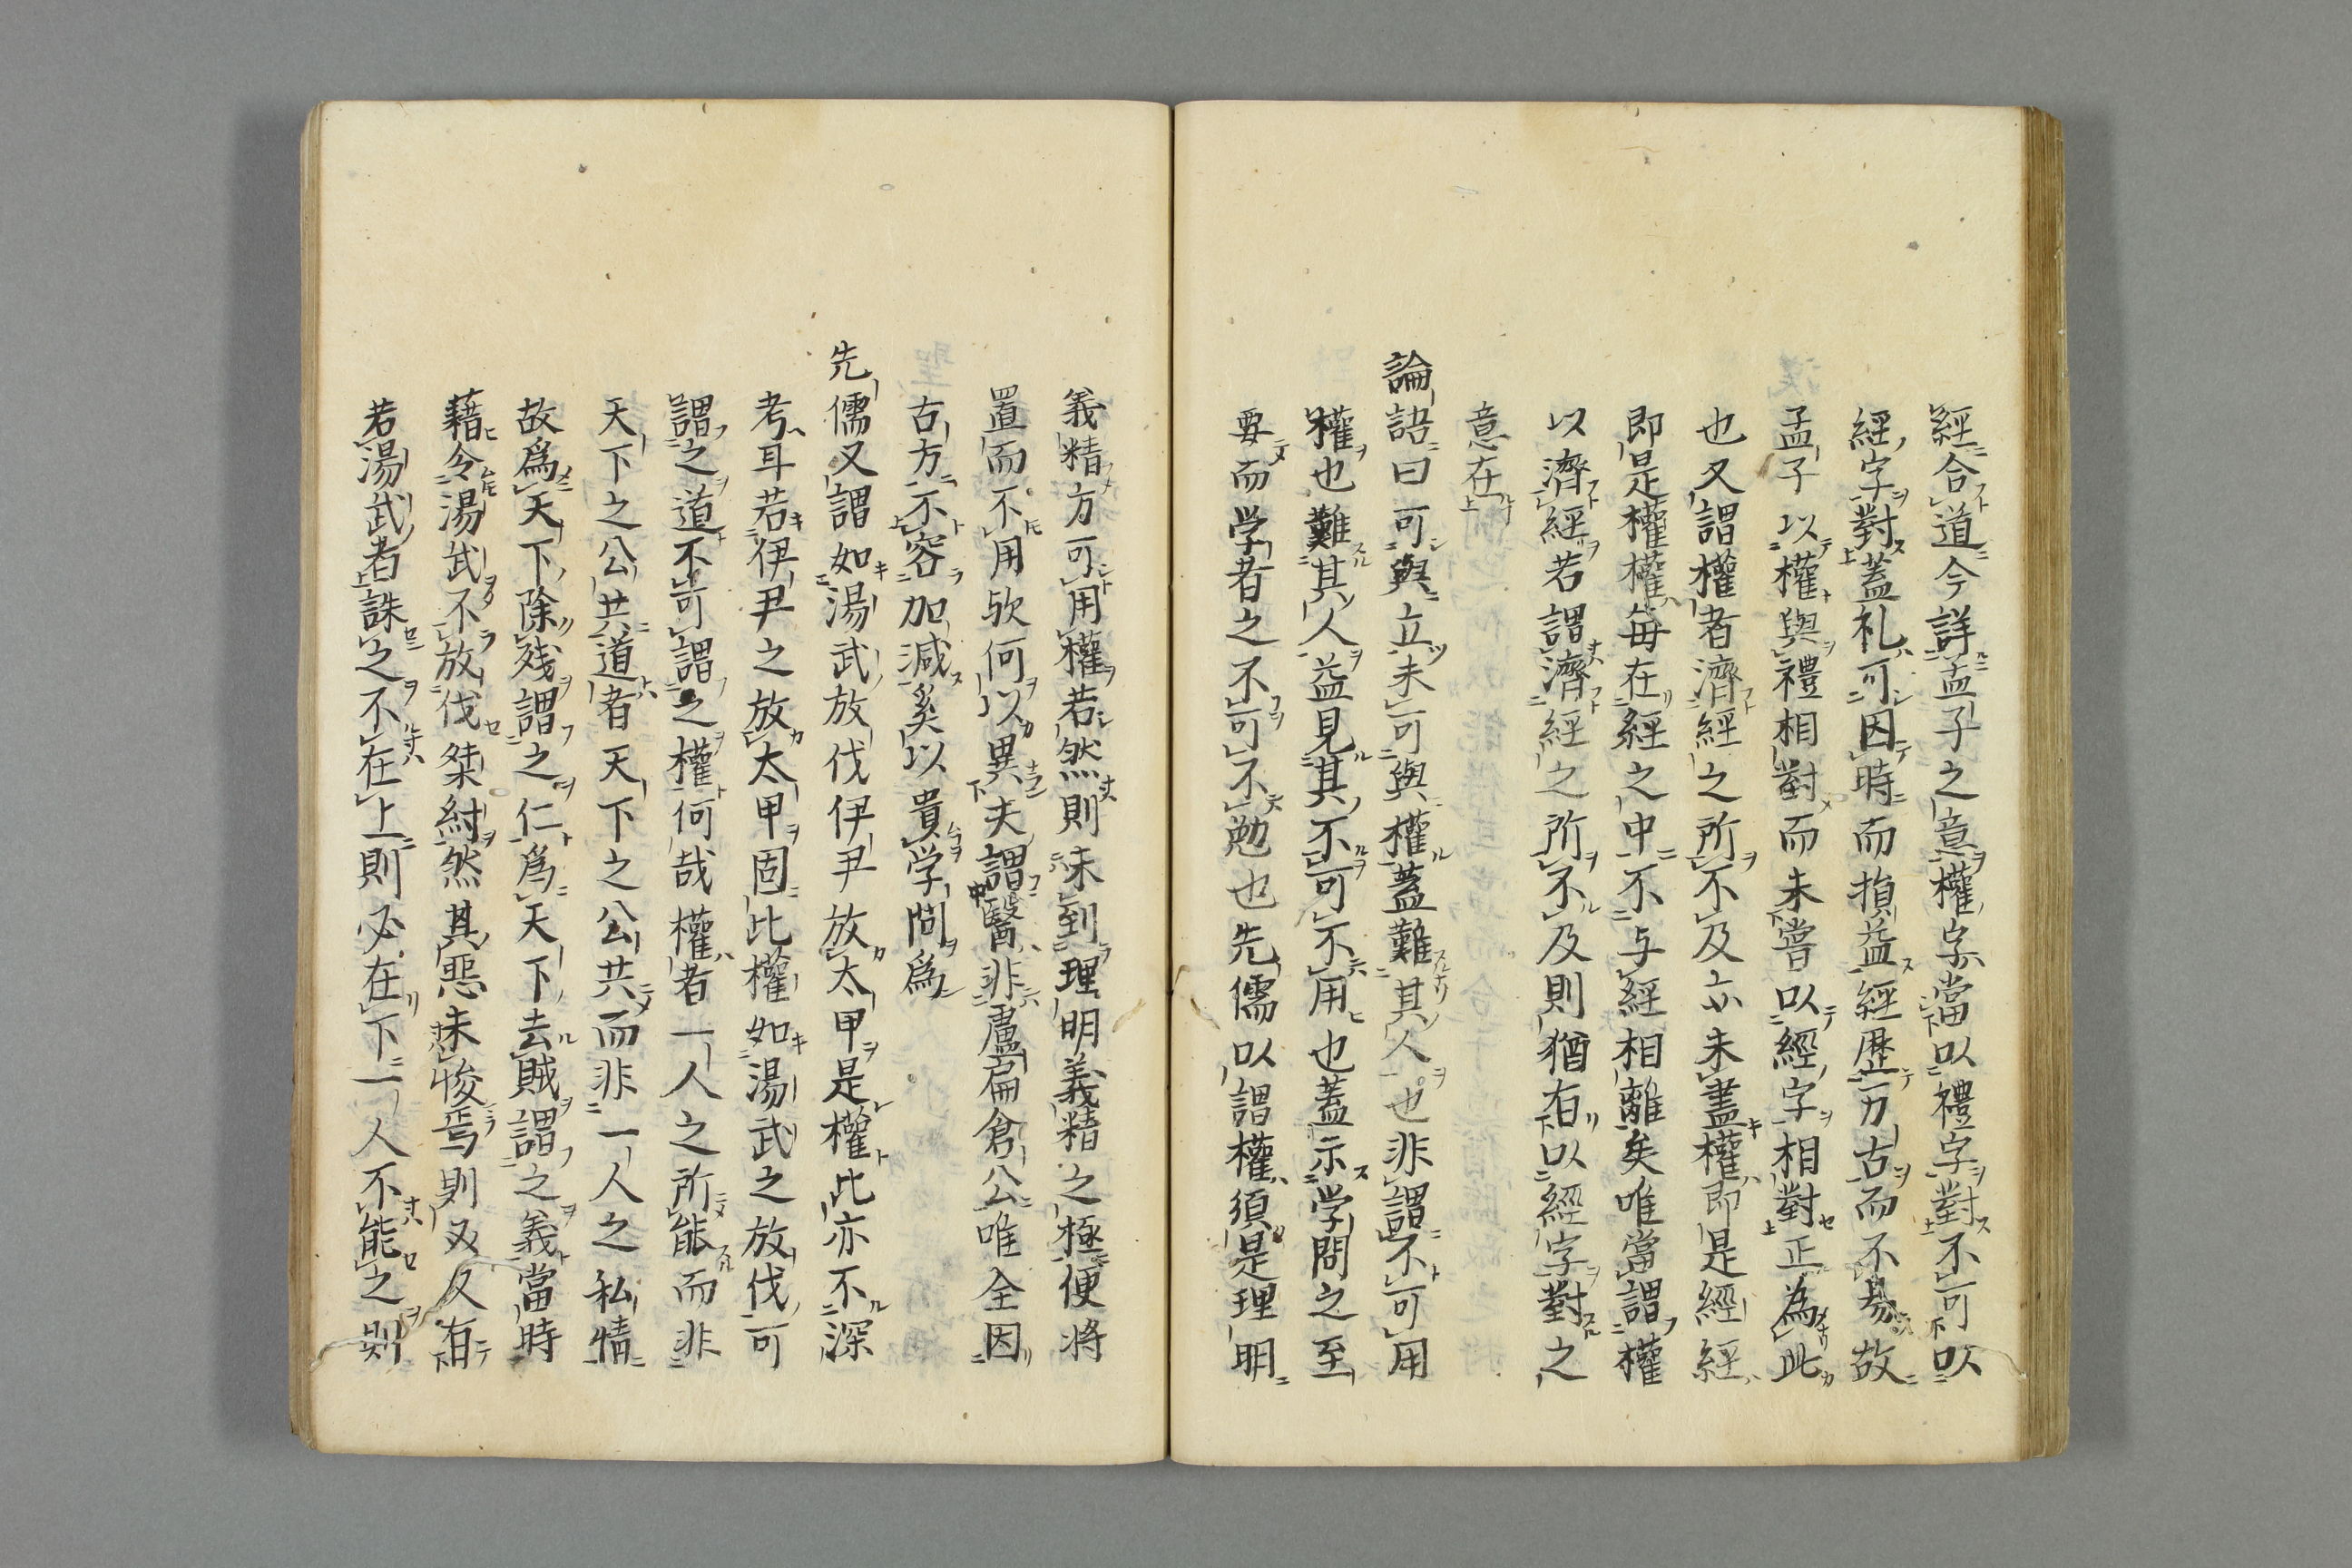 經合道今詳孟子之意權字當以禮字對不可以
經字對蓋礼可因時而損益經歷万古而不易故
孟子以權與禮相對而未嘗以經字相對正為此
也又謂權者濟經之所不及亦未盡權即是經經
即是權權每在經之中不与經相離矣唯當謂權
以濟經若謂濟經之所不及則猶有以經字對之
意在
論語曰可與立未可與權蓋難其人也非謂不可用
權也難其人益見其不可不用也蓋示学問之至
要而学者之不可不勉也先儒以謂權須是理明
義精方可用權若然則未到理明義精之極便將
置而不用欤何以異夫謂醫非盧扁倉公唯全因
古方不容加減奚以貴学問為
先儒又謂如湯武放伐伊尹放太甲是權此亦不深
考耳若伊尹之放太甲固比權如湯武之放伐可
謂之道不可謂之權何哉權者一人之所能而非
天下之公共道者天下之公共而非一人之私情
故為天下除残謂之仁為天下去賊謂之義當時
藉令湯武不放伐桀紂然其惡未悛焉則又又有
若湯武者誅之不在上則必在下一人不能之則